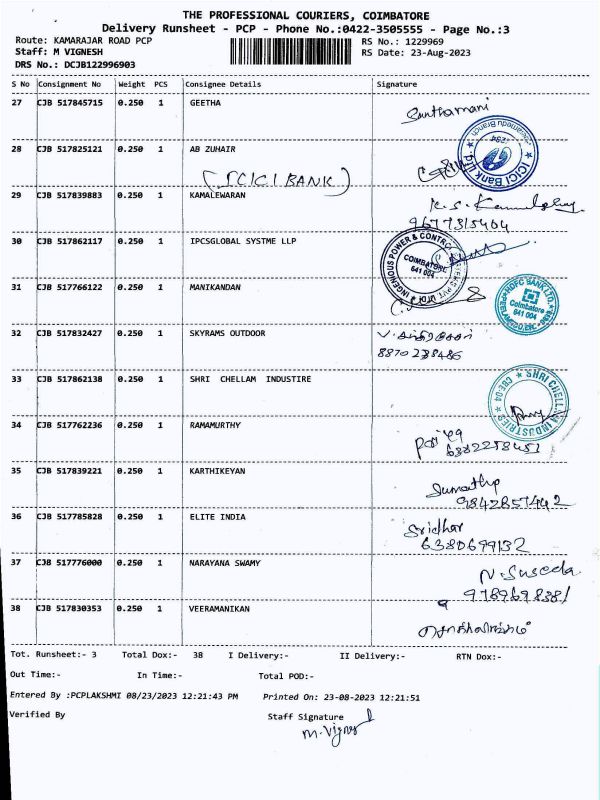 THE PROFESSIONAL COURIERS, COIMBATORE
Delivery Runsheet - PCP - Phone No.:0422-3505555 - Page No.:3
Route: KAMARAJAR ROAD PCP RS No.: 1229969
Staff: M VIGNESH RS Date: 23-Aug-2023
DRS No.: DCJB122996903
S No Consignment No Weight PCS Consignee Details Signature
27 CJB 517845715 0.250 1 GEETHA Santhamani
28 CJB 517825121 0.250 1 AB ZUHAIR ICICI Bank Ltd.
(ICICI BANK)
29 CJB 517839883 0.250 1 KAMALEWARAN K.S.
9677315404
30 CJB 517862117 0.250 1 IPCSGLOBAL SYSTME LLP INGENIOUS POWER & CONTROL COIMBATORE 641 004
31 CJB 517766122 0.250 1 MANIKANDAN HDFC BANK LTD. Coimbatore 641 004
32 CJB 517832427 0.250 1 SKYRAMS OUTDOOR
8870238486
33 CJB 517862138 0.250 1 SHRI CHELLAM INDUSTIRE SHRI CHELLAM INDUSTRIES CBE-04
34 CJB 517762236 0.250 1 RAMAMURTHY
6382258451
35 CJB 517839221 0.250 1 KARTHIKEYAN Sumathy
9842857442
36 CJB 517785828 0.250 1 ELITE INDIA Sridhar
6380699132
37 CJB 517776000 0.250 1 NARAYANA SWAMY N. Suseela
9789698381
38 CJB 517830353 0.250 1 VEERAMANIKAN
Tot. Runsheet:- 3 Total Dox:- 38 I Delivery:- II Delivery:- RTN Dox:-
Out Time:- In Time:- Total POD:-
Entered By :PCPLAKSHMI 08/23/2023 12:21:43 PM Printed On: 23-08-2023 12:21:51
Verified By Staff Signature
M.Vignesh